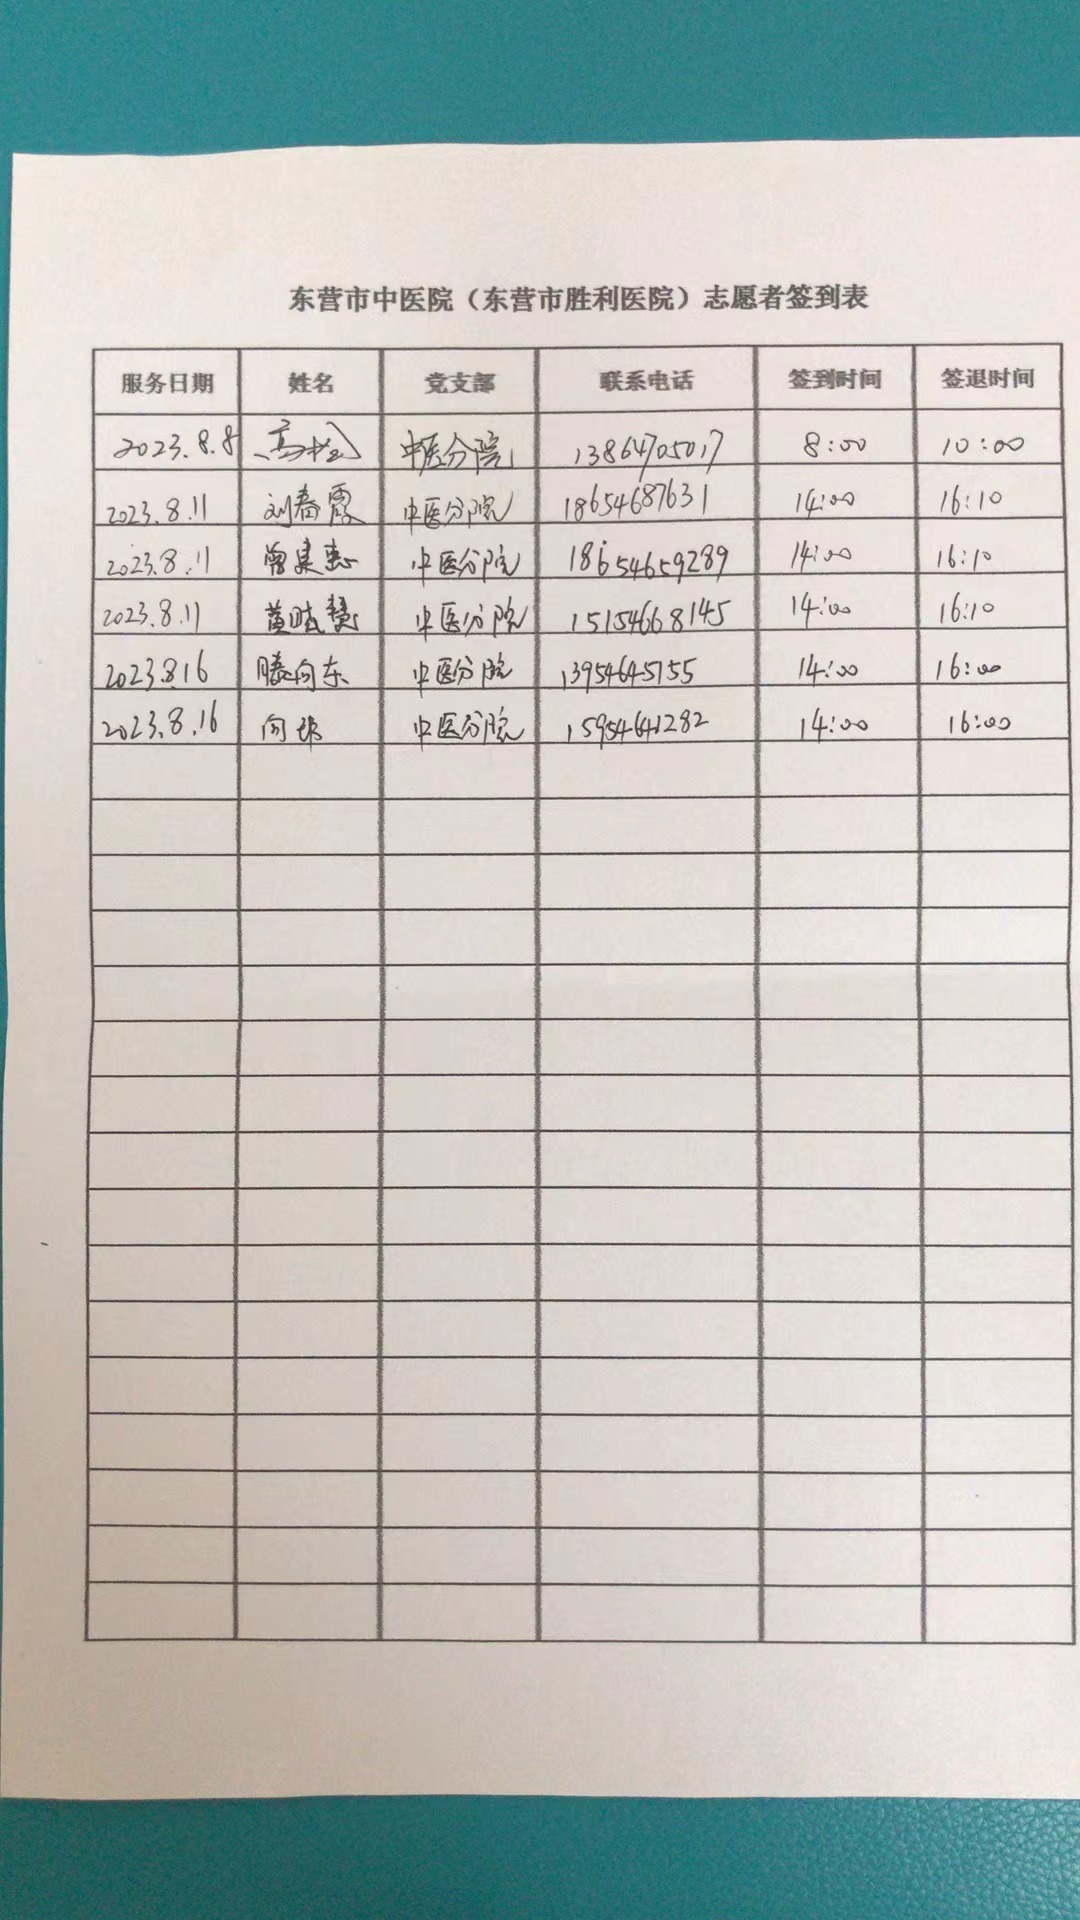 东营市中医院（东营市胜利医院）志愿者签到表
服务日期 姓名 党支部 联系电话 签到时间 签退时间
2023.8.8 高 中医分院 13864705017 8:00 10:00
2023.8.11 刘春霞 中医分院 18654687631 14:00 16:10
2023.8.11 曾建惠 中医分院 18654659289 14:00 16:10
2023.8.11 黄晓慧 中医分院 15154668145 14:00 16:10
2023.8.16 滕向东 中医分院 13954645155 14:00 16:00
2023.8.16 向 中医分院 15954641282 14:00 16:00